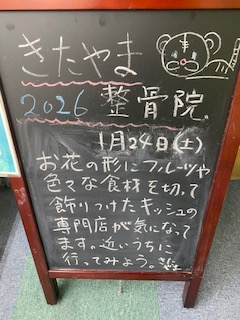 きたやま
2026 整骨院
1月24日(土)
お花の形にフルーツや
色々な食材を切って
飾りつけたキッシュの
専門店が気になって
ます。近いうちに
行ってみよう。